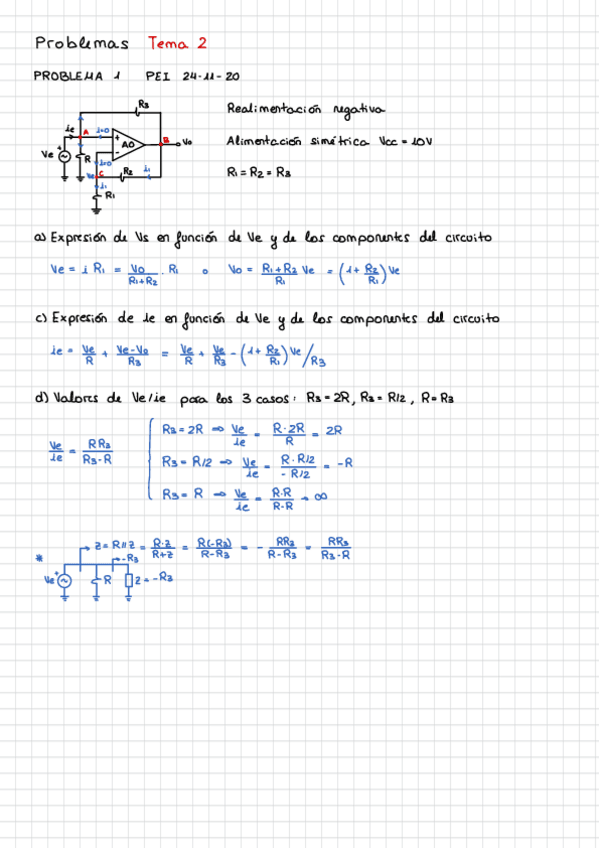 Problemas Tema 2
PROBLEMA 1 PEI 24-11-20
R3
ie A i=0 + AO B Vo
Ve + R i=0 - R2 i1
Ve C
i1
R1
Realimentación negativa
Alimentación simétrica Vcc = 10V
R1 = R2 = R3
a) Expresión de Vs en función de Ve y de los componentes del circuito
Ve = i R1 = Vo/(R1+R2) · R1 o Vo = (R1+R2)/R1 Ve = (1+ R2/R1) Ve
c) Expresión de ie en función de Ve y de los componentes del circuito
ie = Ve/R + (Ve-Vo)/R3 = Ve/R + Ve/R3 - (1+ R2/R1) Ve/R3
d) Valores de Ve/ie para los 3 casos: R3 = 2R, R3 = R/2, R = R3
Ve/ie = RR3/(R3-R)
R3 = 2R ⇒ Ve/ie = R·2R/R = 2R
R3 = R/2 ⇒ Ve/ie = R·R/2/-R/2 = -R
R3 = R ⇒ Ve/ie = R·R/(R-R) → ∞
* z = R//z = R·z/(R+z) = R(-R3)/(R-R3) = - RR3/(R-R3) = RR3/(R3-R)
-R3
Ve + R z = -R3